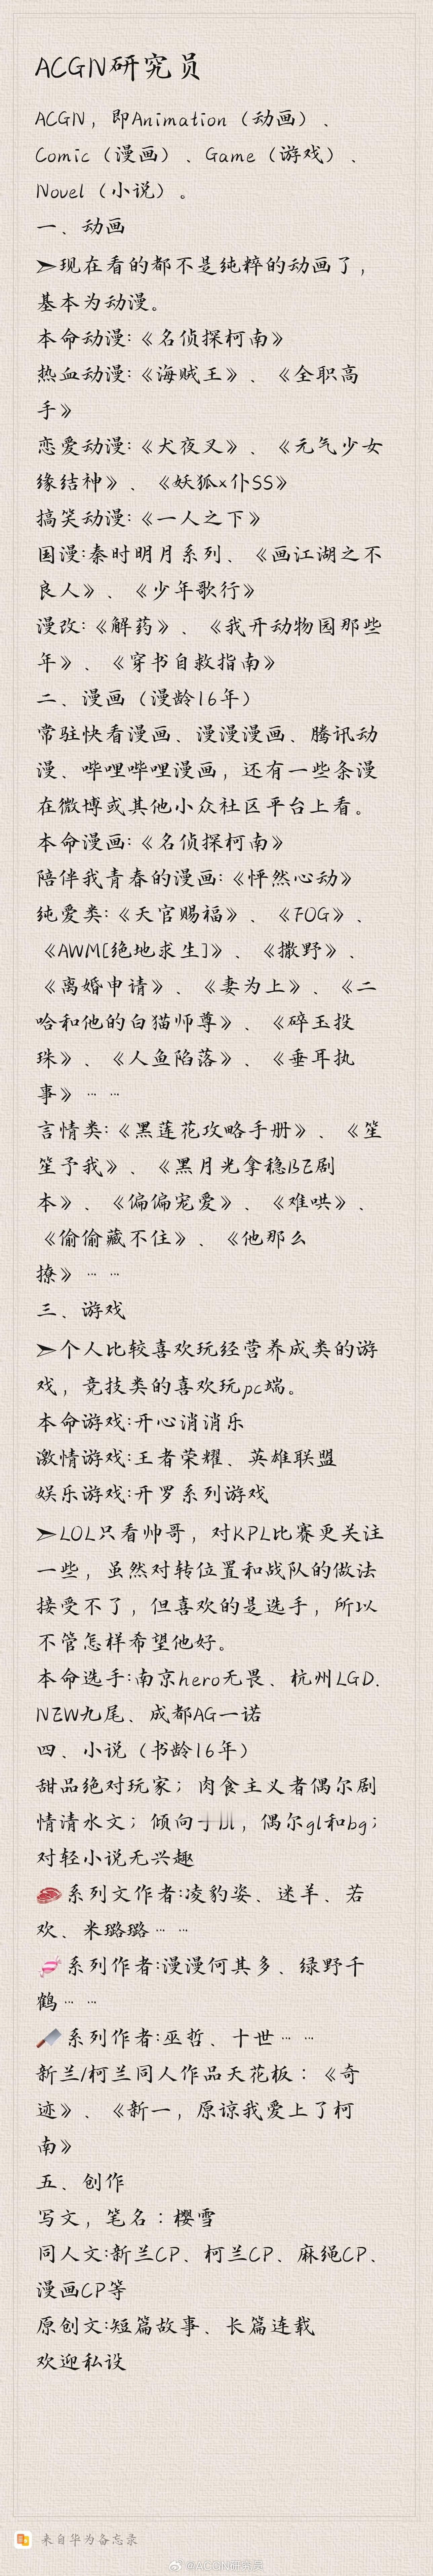 ACGN研究员
ACGN，即Animation（动画）、
Comic（漫画）、Game（游戏）、
Novel（小说）。
一、动画
➢现在看的都不是纯粹的动画了，
基本为动漫。
本命动漫:《名侦探柯南》
热血动漫:《海贼王》、《全职高
手》
恋爱动漫:《犬夜叉》、《元气少女
缘结神》、《妖狐×仆SS》
搞笑动漫:《一人之下》
国漫:秦时明月系列、《画江湖之不
良人》、《少年歌行》
漫改:《解药》、《我开动物园那些
年》、《穿书自救指南》
二、漫画（漫龄16年）
常驻快看漫画、漫漫漫画、腾讯动
漫、哔哩哔哩漫画，还有一些条漫
在微博或其他小众社区平台上看。
本命漫画:《名侦探柯南》
陪伴我青春的漫画:《怦然心动》
纯爱类:《天官赐福》、《FOG》、
《AWM[绝地求生]》、《撒野》、
《离婚申请》、《妻为上》、《二
哈和他的白猫师尊》、《碎玉投
珠》、《人鱼陷落》、《垂耳执
事》……
言情类:《黑莲花攻略手册》、《笙
笙予我》、《黑月光拿稳BE剧
本》、《偏偏宠爱》、《难哄》、
《偷偷藏不住》、《他那么
撩》……
三、游戏
➢个人比较喜欢玩经营养成类的游
戏，竞技类的喜欢玩pc端。
本命游戏:开心消消乐
激情游戏:王者荣耀、英雄联盟
娱乐游戏:开罗系列游戏
➢LOL只看帅哥，对KPL比赛更关注
一些，虽然对转位置和战队的做法
接受不了，但喜欢的是选手，所以
不管怎样希望他好。
本命选手:南京hero无畏、杭州LGD.
NZW九尾、成都AG一诺
四、小说（书龄16年）
甜品绝对玩家；肉食主义者偶尔剧
情清水文；倾向于bl，偶尔gl和bg；
对轻小说无兴趣
🥩系列文作者:凌豹姿、迷羊、若
欢、米璐璐……
🍬系列作者:漫漫何其多、绿野千
鹤……
🔪系列作者:巫哲、十世……
新兰/柯兰同人作品天花板：《奇
迹》、《新一，原谅我爱上了柯
南》
五、创作
写文，笔名：樱雪
同人文:新兰CP、柯兰CP、麻绳CP、
漫画CP等
原创文:短篇故事、长篇连载
欢迎私设
来自华为备忘录
@ACGN研究员